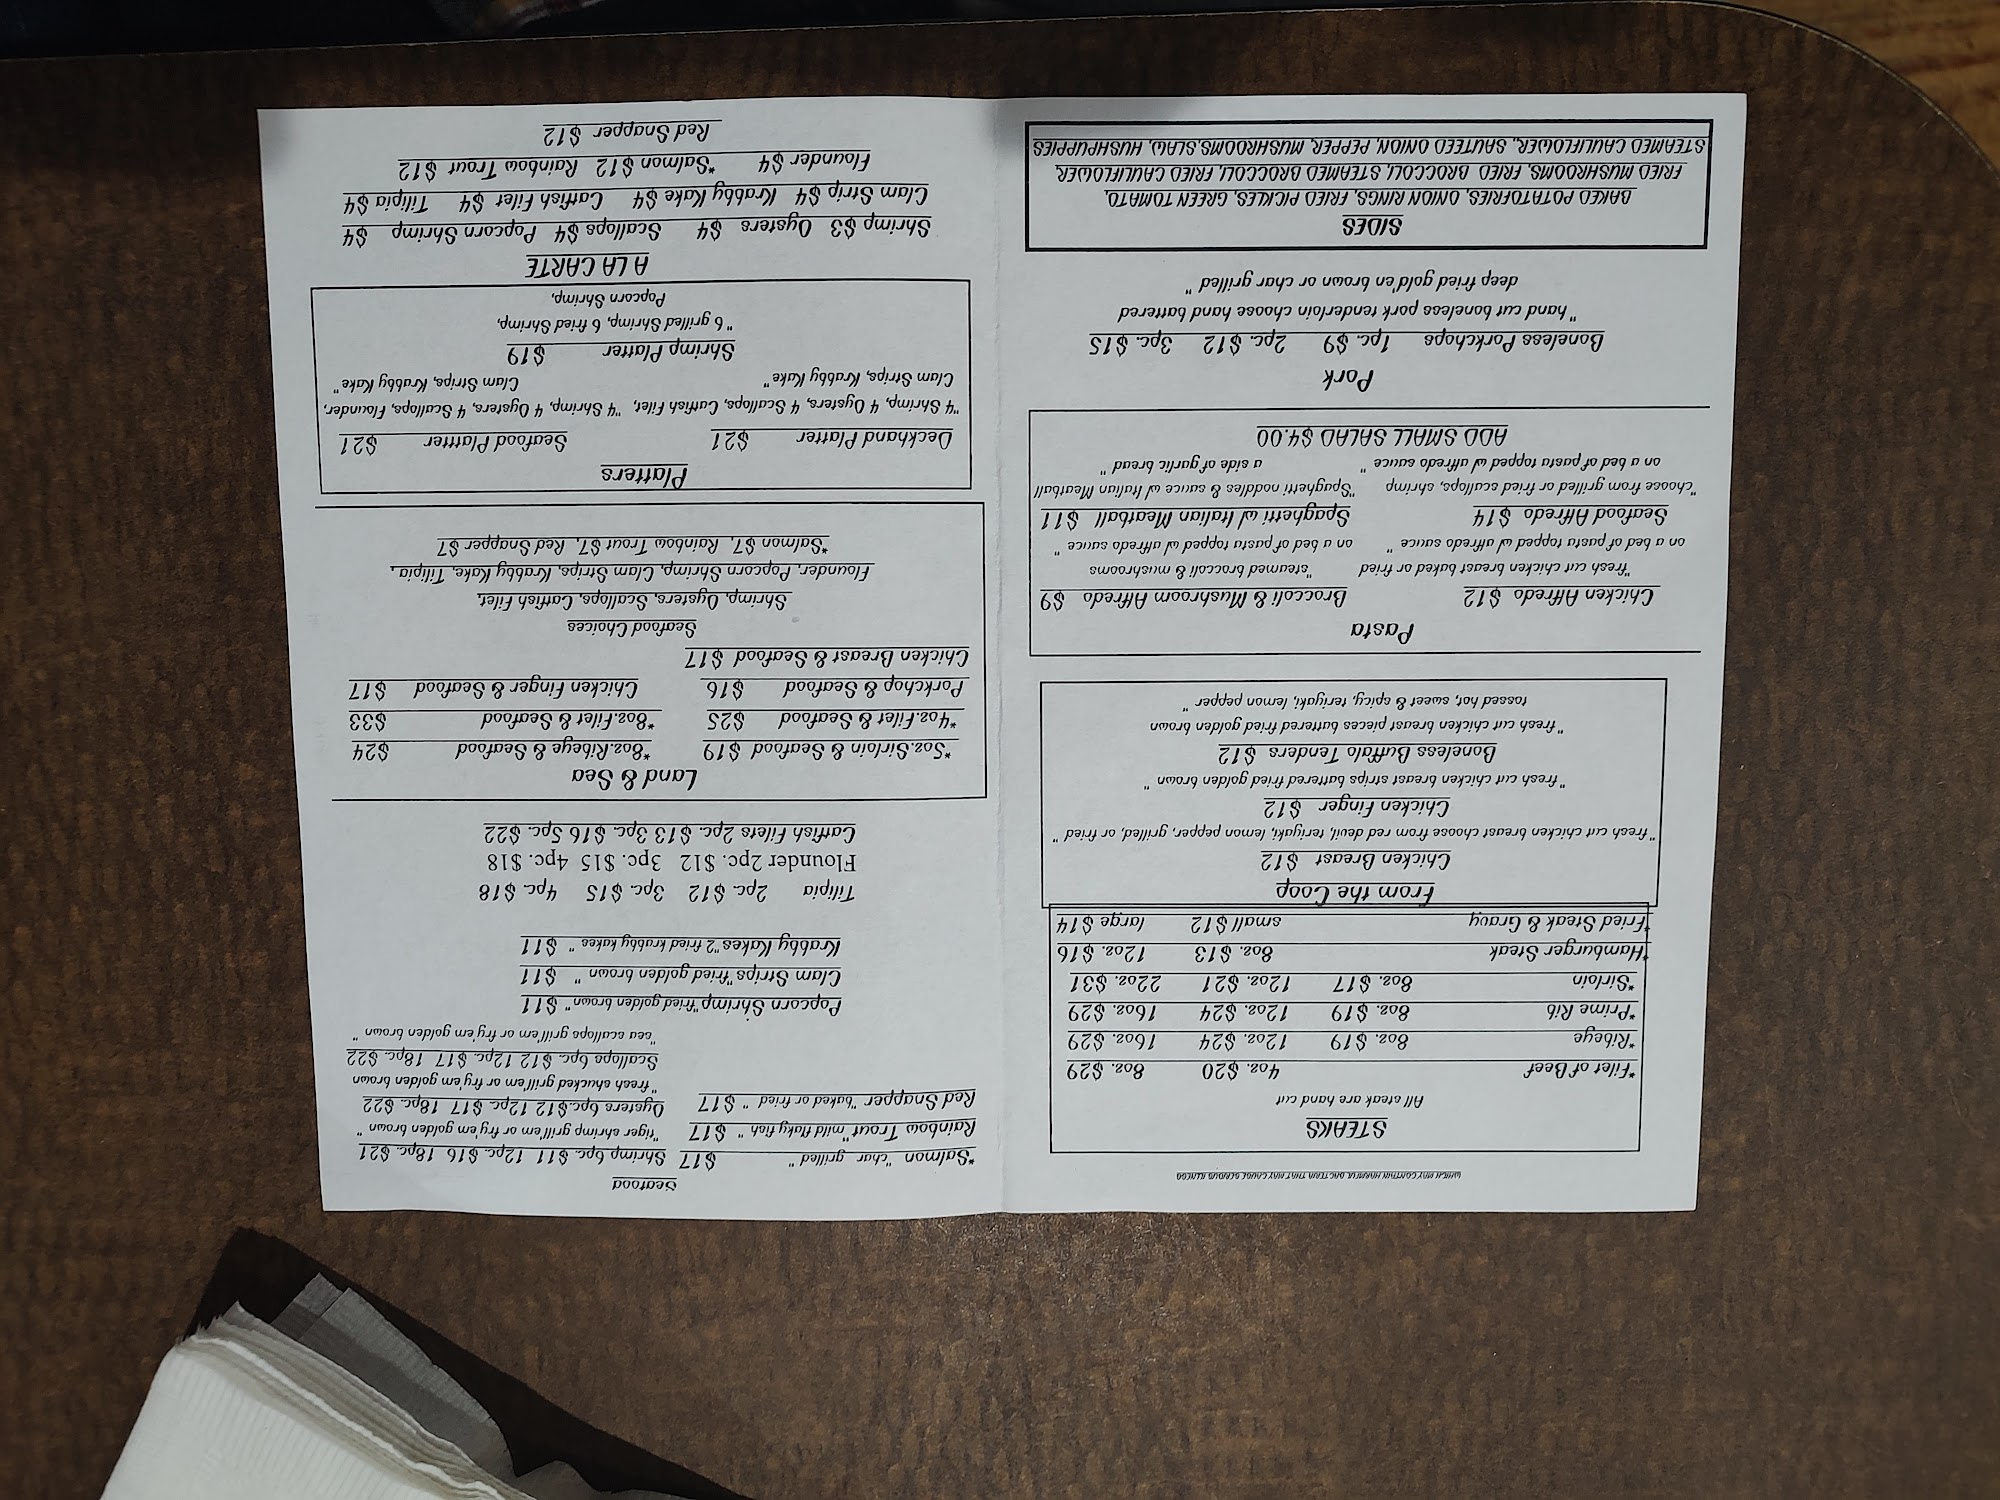 WHICH MAY CONTAIN HARMFUL BACTERIA THAT MAY CAUSE SERIOUS ILLNESS
STEAKS
All steak are hand cut
*Filet of Beef 4oz. $20 8oz. $29
*Ribeye 8oz. $19 12oz. $24 16oz. $29
*Prime Rib 8oz. $19 12oz. $24 16oz. $29
*Sirloin 8oz. $17 12oz. $21 22oz. $31
*Hamburger Steak 8oz. $13 12oz. $16
*Fried Steak & Gravy small $12 large $14
From the Coop
Chicken Breast $12
"fresh cut chicken breast choose from red devil, teriyaki, lemon pepper, grilled, or fried "
Chicken Finger $12
"fresh cut chicken breast strips battered fried golden brown "
Boneless Buffalo Tenders $12
"fresh cut chicken breast pieces battered fried golden brown
tossed hot, sweet & spicy, teriyaki, lemon pepper "
Pasta
Chicken Alfredo $12 Broccoli & Mushroom Alfredo $9
"fresh cut chicken breast baked or fried "steamed broccoli & mushrooms
on a bed of pasta topped w alfredo sauce " on a bed of pasta topped w alfredo sauce "
Seafood Alfredo $14 Spaghetti w Italian Meatball $11
"choose from grilled or fried scallops, shrimp "Spaghetti noddles & sauce w Italian Meatball
on a bed of pasta topped w alfredo sauce " a side of garlic bread "
ADD SMALL SALAD $4.00
Pork
Boneless Porkchops 1pc. $9 2pc. $12 3pc. $15
"hand cut boneless pork tenderloin choose hand battered
deep fried gold'en brown or char grilled "
SIDES
BAKED POTATOFRIES, ONION RINGS, FRIED PICKLES, GREEN TOMATO,
FRIED MUSHROOMS, FRIED BROCCOLI, STEAMED BROCCOLI, FRIED CAULIFLOWER
STEAMED CAULIFLOWER, SAUTEED ONION, PEPPER, MUSHROOMS,SLAW, HUSHPUPPIES
Seafood
*Salmon "char grilled " $17 Shrimp 6pc. $11 12pc. $16 18pc. $21
"tiger shrimp grill'em or fry'em golden brown "
Rainbow Trout"mild flaky fish " $17 Oysters 6pc.$12 12pc. $17 18pc. $22
"fresh shucked grill'em or fry'em golden brown
Red Snapper "baked or fried " $17 Scallops 6pc. $12 12pc. $17 18pc. $22
"sea scallops grill'em or fry'em golden brown "
Popcorn Shrimp"fried golden brown" $11
Clam Strips"fried golden brown " $11
Krabby Kakes"2 fried krabby kakes " $11
Tilipia 2pc. $12 3pc. $15 4pc. $18
Flounder 2pc. $12 3pc. $15 4pc. $18
Catfish Filets 2pc. $13 3pc. $16 5pc. $22
Land & Sea
*5oz.Sirloin & Seafood $19 *8oz.Ribeye & Seafood $24
*4oz.Filet & Seafood $25 *8oz.Filet & Seafood $33
Porkchop & Seafood $16 Chicken Finger & Seafood $17
Chicken Breast & Seafood $17
Seafood Choices
Shrimp, Oysters, Scallops, Catfish Filet,
Flounder, Popcorn Shrimp, Clam Strips, Krabby Kake, Tilipia,
*Salmon $7, Rainbow Trout $7, Red Snapper $7
Platters
Deckhand Platter $21 Seafood Plattter $21
"4 Shrimp, 4 Oysters, 4 Scallops, Catfish Filet, "4 Shrimp, 4 Oysters, 4 Scallops, Flounder,
Clam Strips, Krabby Kake" Clam Strips, Krabby Kake"
Shrimp Platter $19
"6 grilled Shrimp, 6 fried Shrimp,
Popcorn Shrimp,
A LA CARTE
Shrimp $3 Oysters $4 Scallops $4 Popcorn Shrimp $4
Clam Strip $4 Krabby Kake $4 Catfish Filet $4 Tilipia $4
Flounder $4 *Salmon $12 Rainbow Trout $12
Red Snapper $12